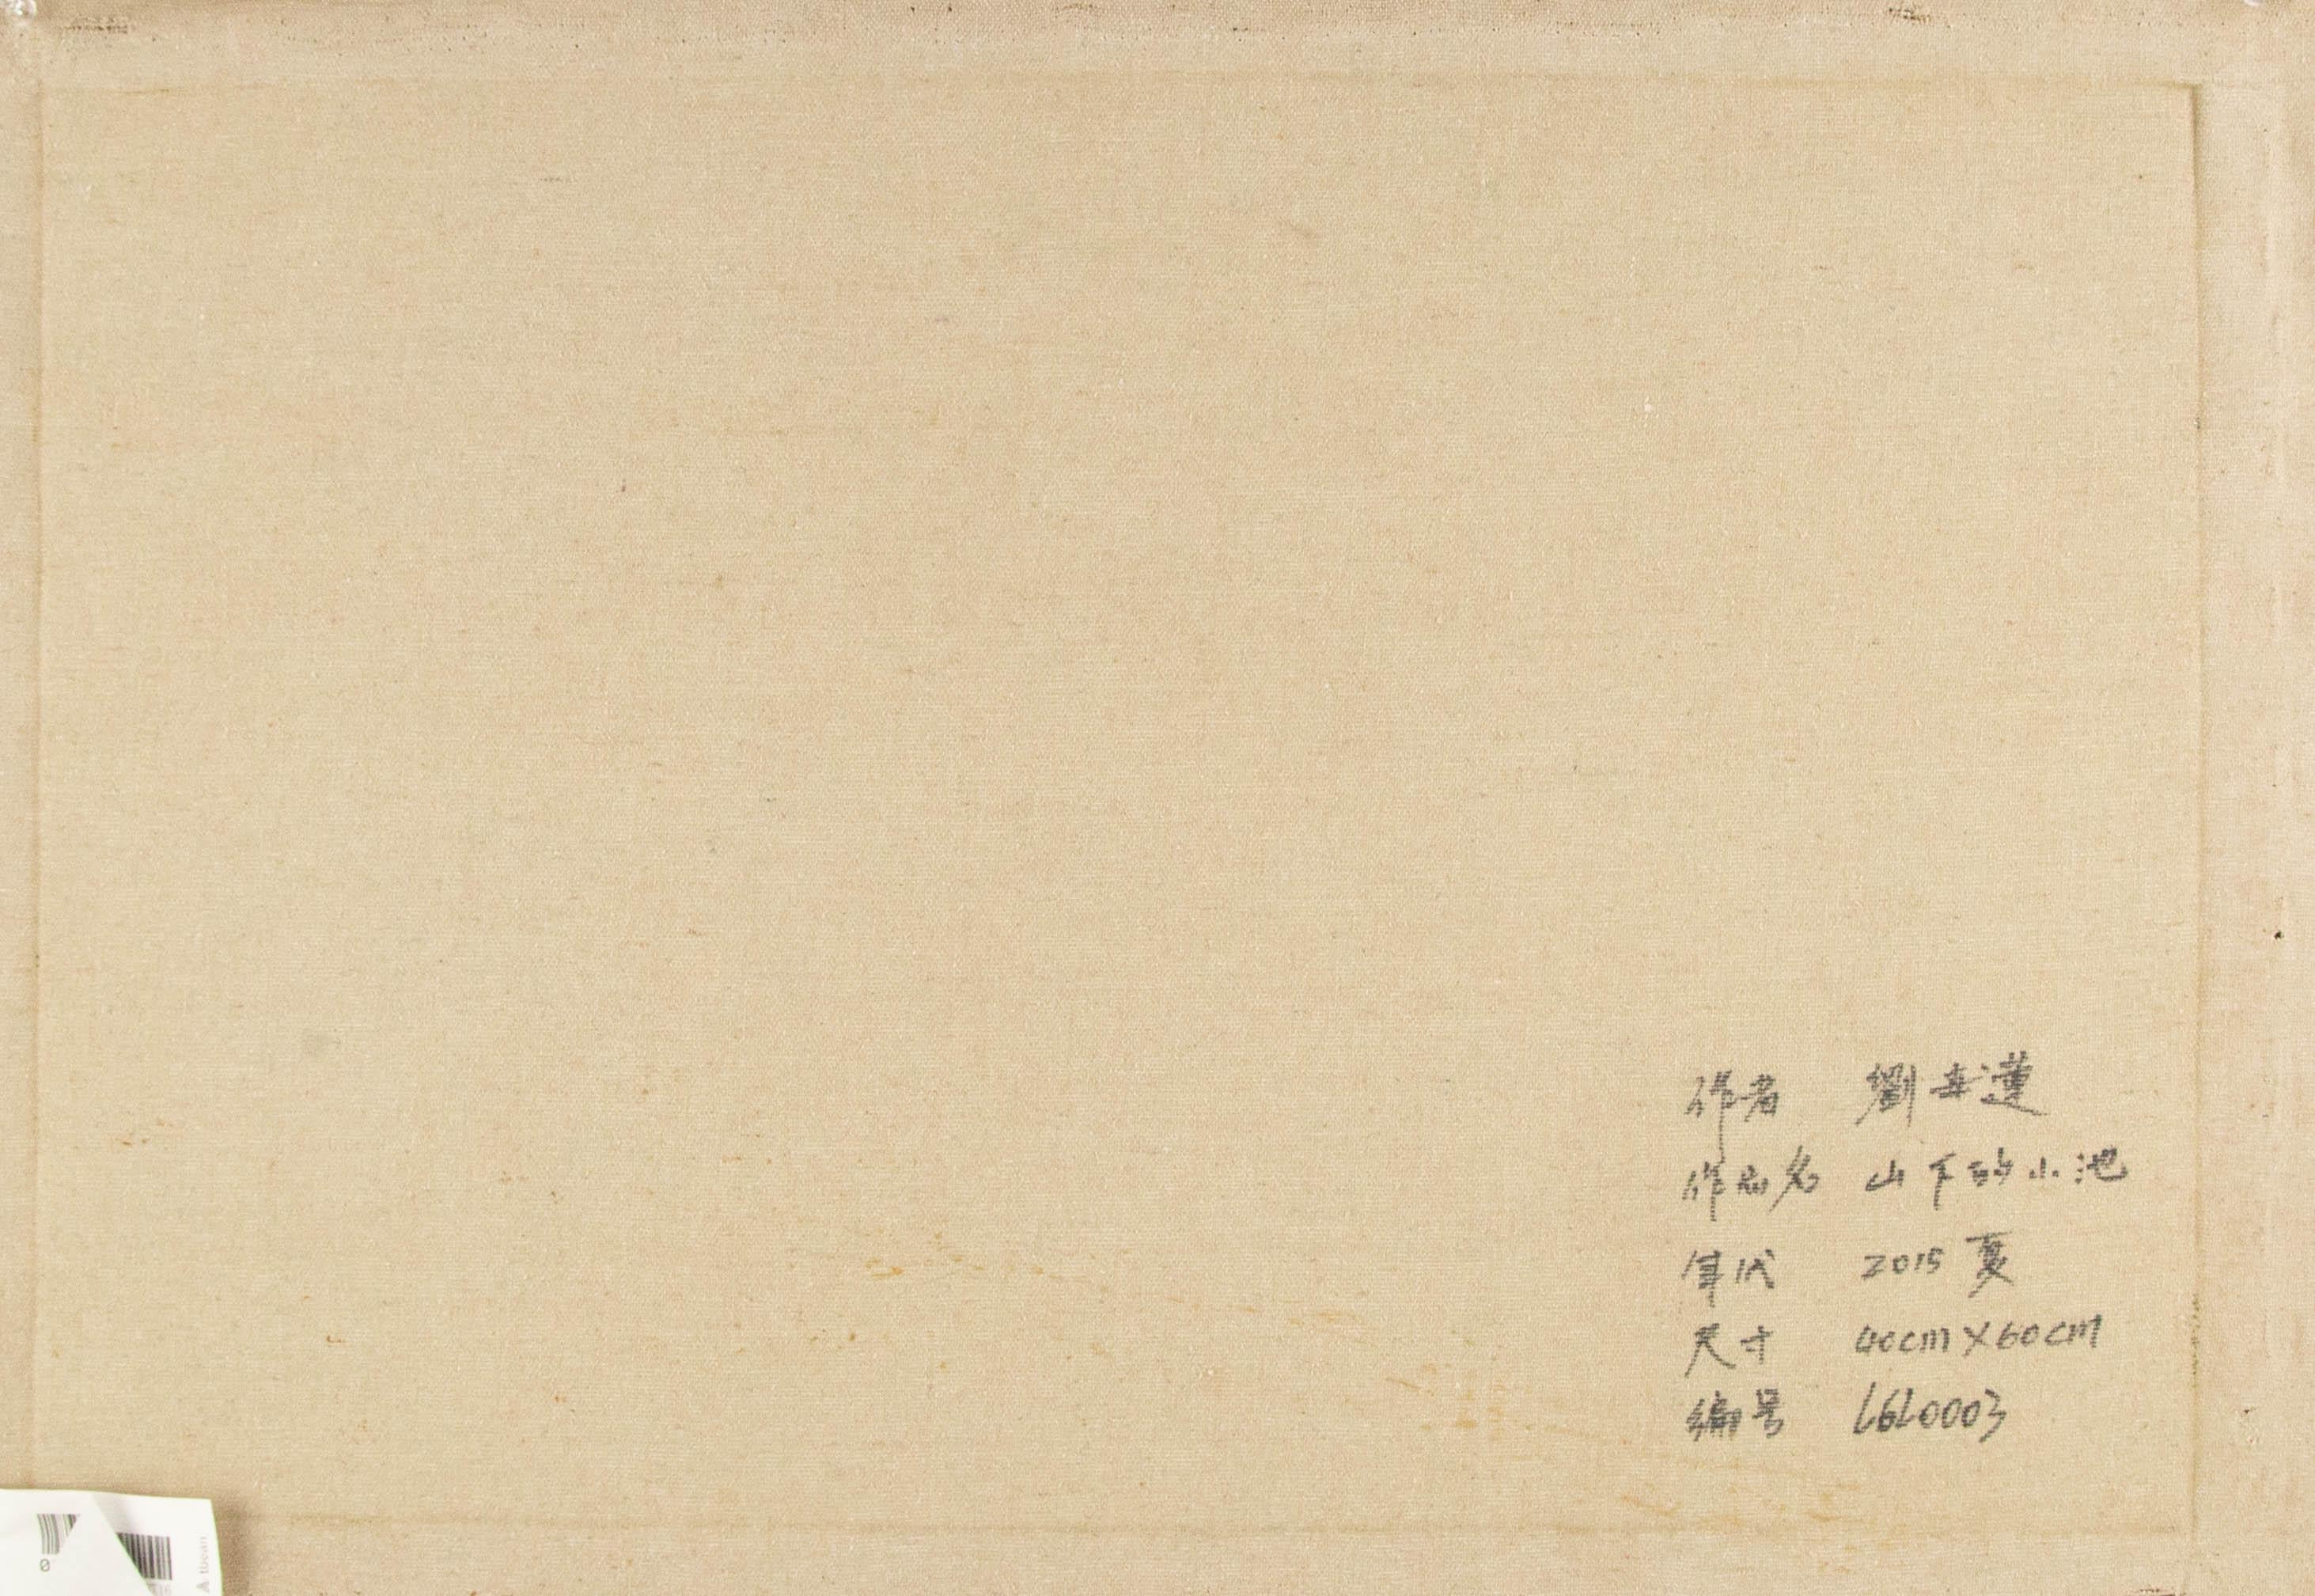 作者 劉亚蓮
作品名 山下的小池
年代 2015 夏
尺寸 40cm×60cm
编号 L6L0003
0